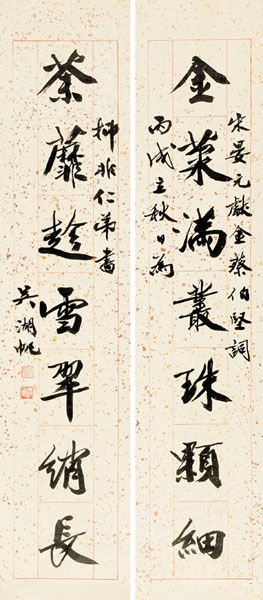 金菊滿叢珠顆細
宋晏元獻金蔡伯堅詞
丙戌立秋日為
荼蘼趁雪翠綃長
抑非仁弟書
吳湖帆